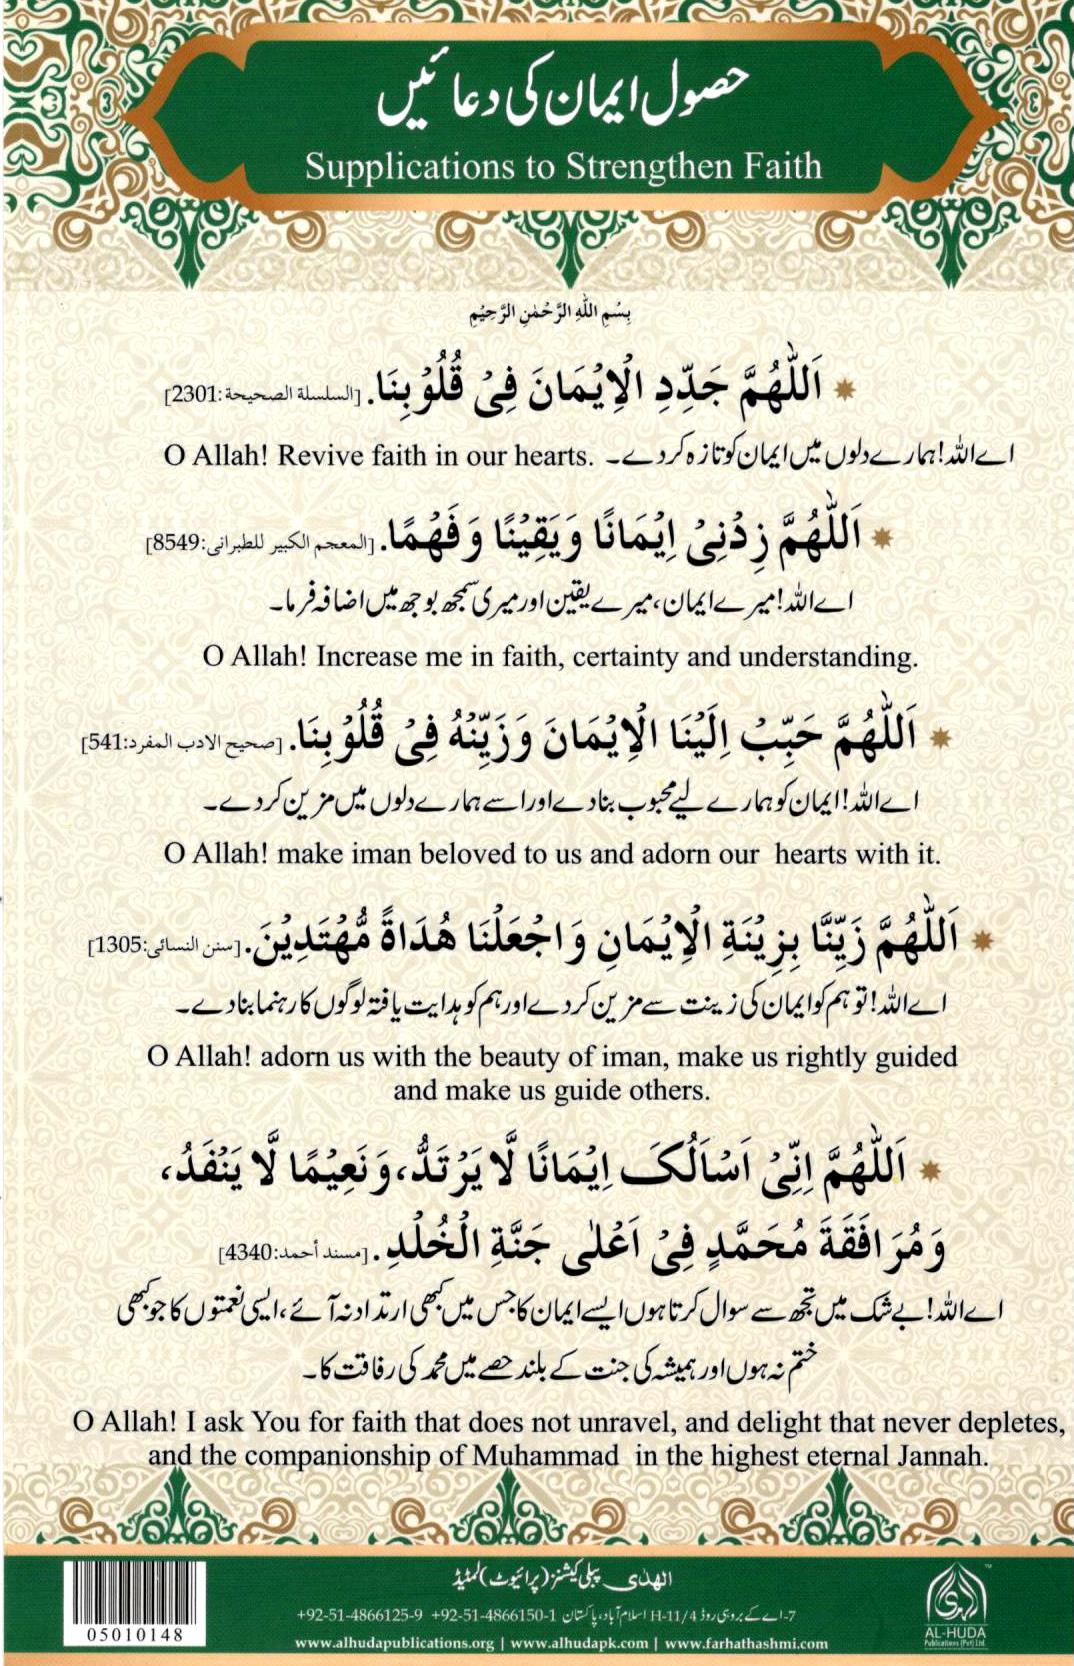 حصول ایمان کی دعائیں
Supplications to Strengthen Faith
بِسْمِ اللهِ الرَّحْمٰنِ الرَّحِيْمِ
اَللّٰهُمَّ جَدِّدِ الْاِيْمَانَ فِىْ قُلُوْبِنَا. [السلسلة الصحيحة:2301]
اے اللہ! ہمارے دلوں میں ایمان کو تازہ کردے۔ O Allah! Revive faith in our hearts.
اَللّٰهُمَّ زِدْنِىْ اِيْمَانًا وَيَقِيْنًا وَفَهْمًا. [المعجم الكبير للطبرانى:8549]
اے اللہ! میرے ایمان، میرے یقین اور میری سمجھ بوجھ میں اضافہ فرما۔
O Allah! Increase me in faith, certainty and understanding.
اَللّٰهُمَّ حَبِّبْ اِلَيْنَا الْاِيْمَانَ وَزَيِّنْهُ فِىْ قُلُوْبِنَا. [صحيح الادب المفرد:541]
اے اللہ! ایمان کو ہمارے لیے محبوب بنادے اور اسے ہمارے دلوں میں مزین کردے۔
O Allah! make iman beloved to us and adorn our hearts with it.
اَللّٰهُمَّ زَيِّنَّا بِزِيْنَةِ الْاِيْمَانِ وَاجْعَلْنَا هُدَاةً مُّهْتَدِيْنَ. [سنن النسائى:1305]
اے اللہ! تو ہم کو ایمان کی زینت سے مزین کردے اور ہم کو ہدایت یافتہ لوگوں کا رہنما بنادے۔
O Allah! adorn us with the beauty of iman, make us rightly guided
and make us guide others.
اَللّٰهُمَّ اِنِّىْ اَسْاَلُكَ اِيْمَانًا لَّا يَرْتَدُّ، وَنَعِيْمًا لَّا يَنْفَدُ،
وَمُرَافَقَةَ مُحَمَّدٍ فِىْ اَعْلٰى جَنَّةِ الْخُلْدِ. [مسند أحمد:4340]
اے اللہ! بے شک میں تجھ سے سوال کرتا ہوں ایسے ایمان کا جس میں کبھی ارتداد نہ آئے، ایسی نعمتوں کا جو کبھی
ختم نہ ہوں اور ہمیشہ کی جنت کے بلند حصے میں محمد کی رفاقت کا۔
O Allah! I ask You for faith that does not unravel, and delight that never depletes,
and the companionship of Muhammad in the highest eternal Jannah.
الھدٰی پبلی کیشنز (پرائیوٹ) لمٹیڈ
7-اے کے بروہی روڈ H-11/4 اسلام آباد، پاکستان +92-51-4866150-1 +92-51-4866125-9
www.alhudapublications.org | www.alhudapk.com | www.farhathashmi.com
05010148
الھدی
TM
AL-HUDA
Publications (Pvt) Ltd.